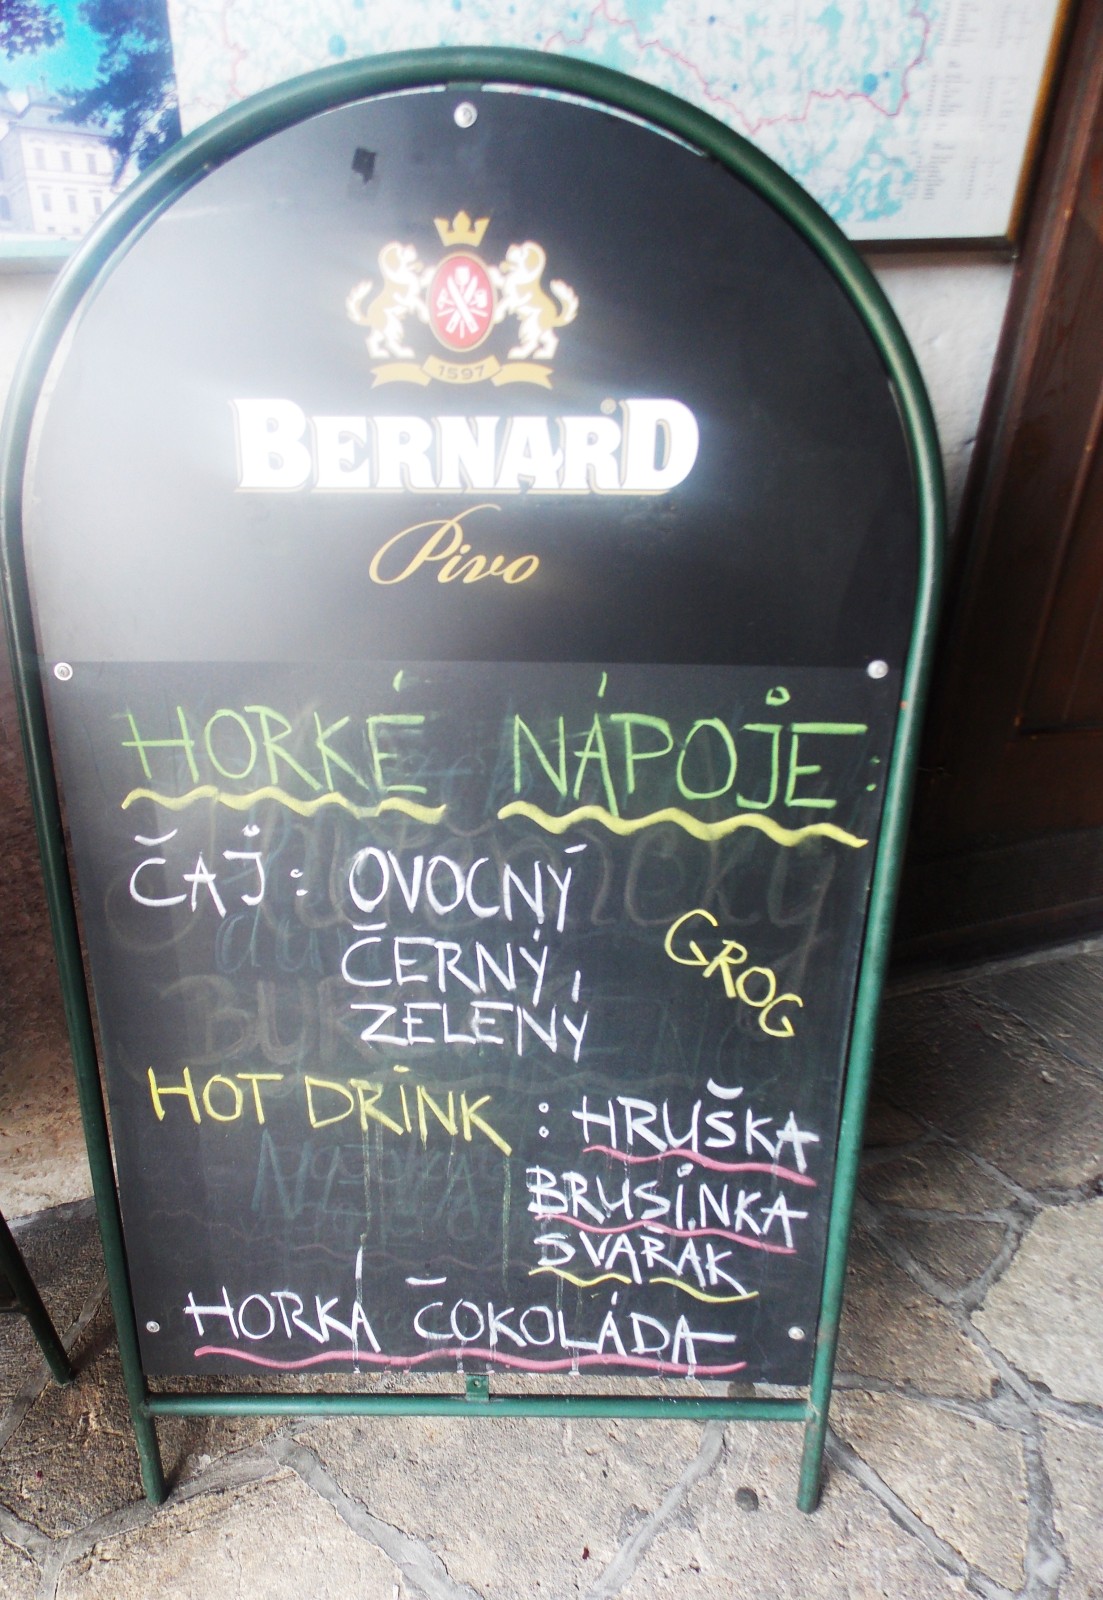 1597
BERNARD
Pivo
HORKÉ NÁPOJE:
ČAJ: OVOCNÝ
ČERNÝ,
ZELENÝ
GROG
HOT DRINK : HRUŠKA
BRUSINKA
SVAŘÁK
HORKÁ ČOKOLÁDA